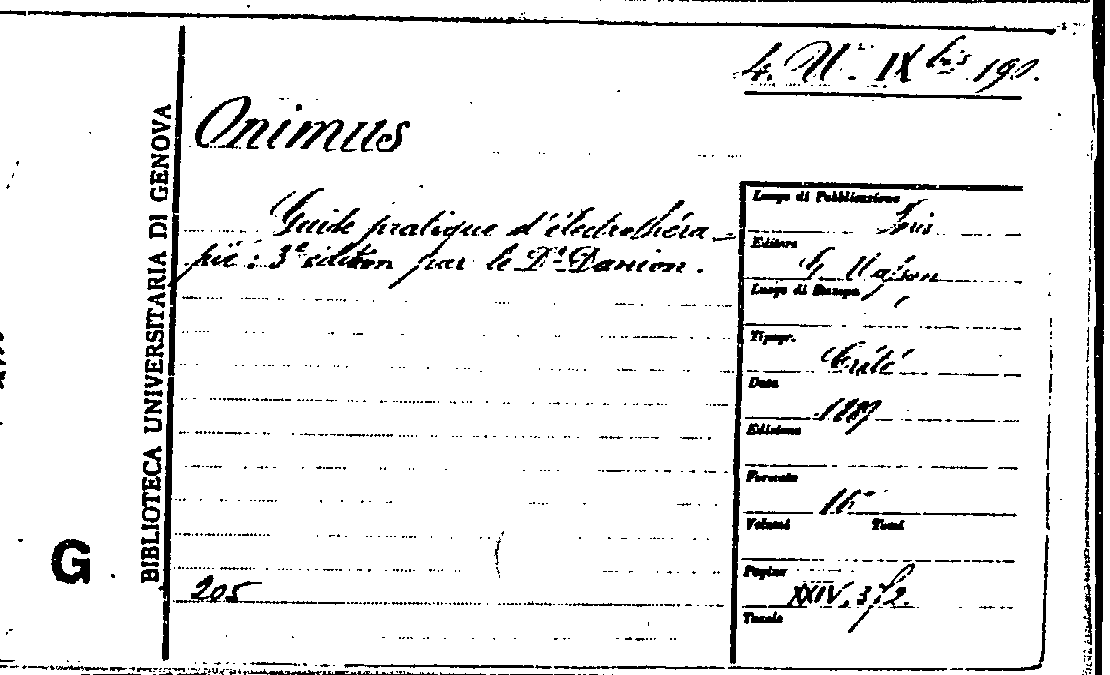 4. U. IX bis 190.
Onimus
Guide pratique d'électrothéra-
pie : 3e édition par le Dr Danion.
205
BIBLIOTECA UNIVERSITARIA DI GENOVA
G
Luogo di Pubblicazione
Paris
Editore
G. Masson
Luogo di Stampa
Tipogr.
Crété
Data
1889
Edizione
Formato
16°
Volumi Tomi
Pagine
XXIV, 372.
Tavole